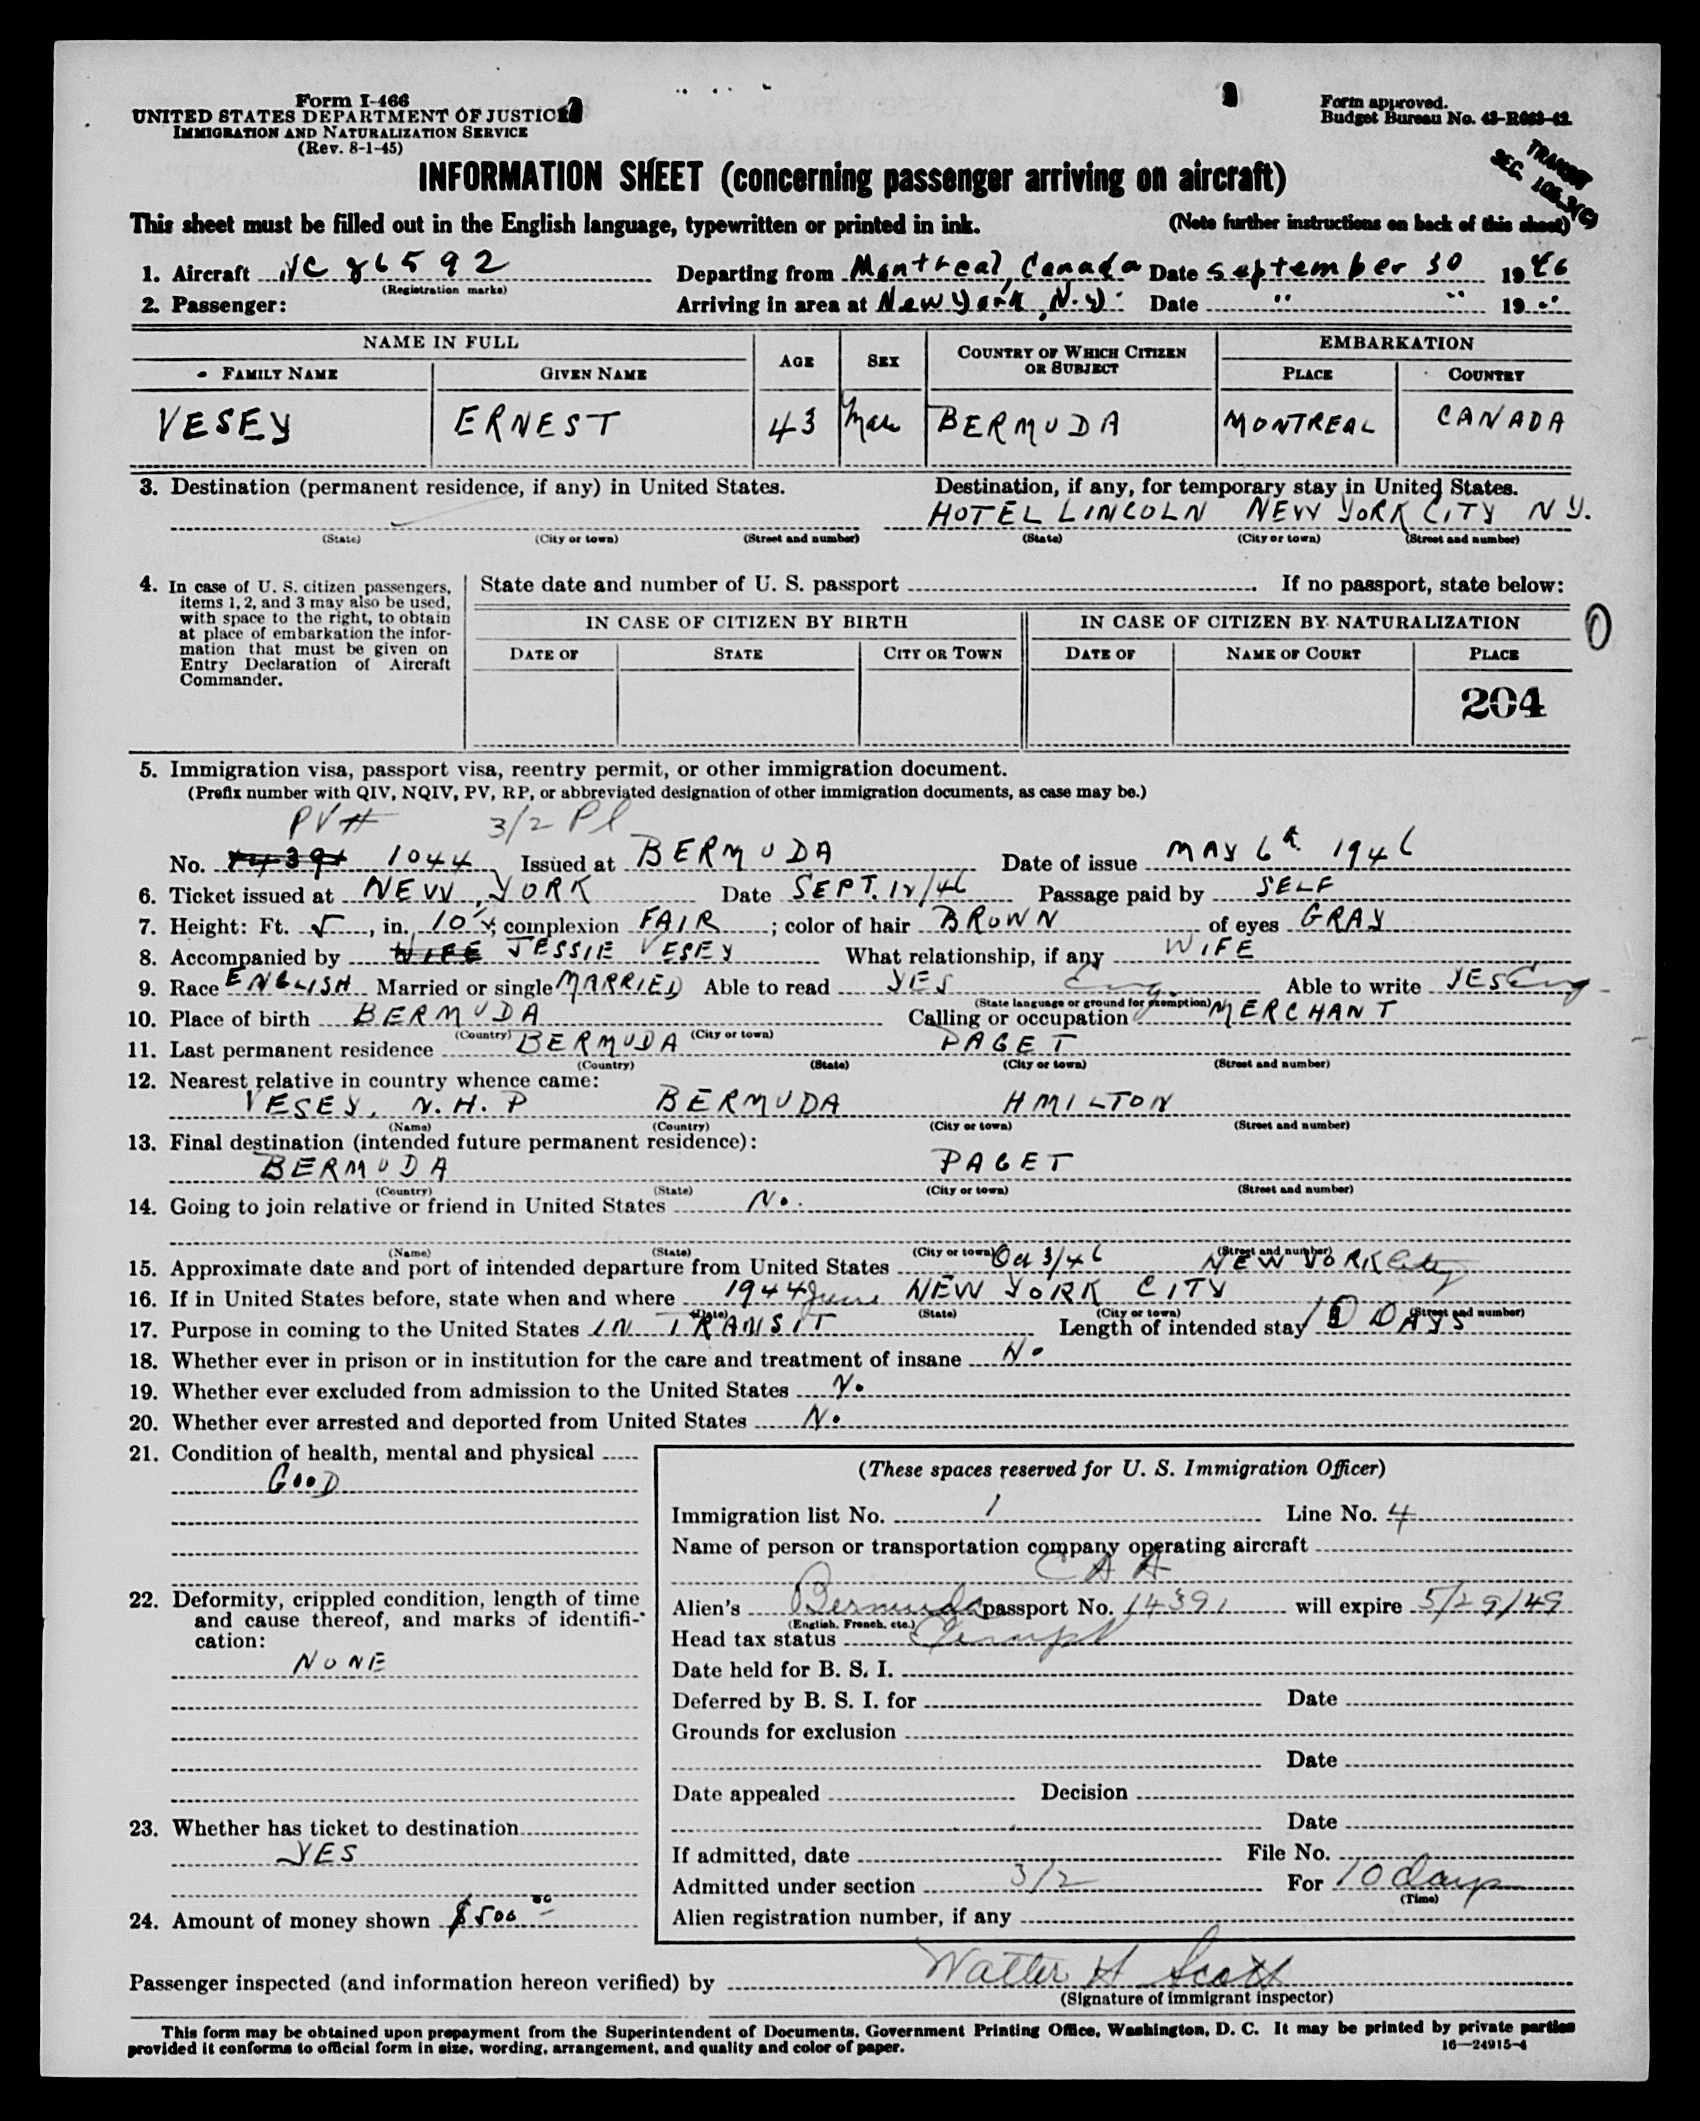 Form I-466
UNITED STATES DEPARTMENT OF JUSTICE
IMMIGRATION AND NATURALIZATION SERVICE
(Rev. 8-1-45)
Form approved.
Budget Bureau No.
TRANSIT
SEC.
INFORMATION SHEET (concerning passenger arriving on aircraft)
This sheet must be filled out in the English language, typewritten or printed in ink. (Note further instructions on back of this sheet)
1. Aircraft NC 86592 Departing from Montreal, Canada Date September 30 1946
(Registration marks)
2. Passenger: Arriving in area at New York, N.Y. Date " " 19 "
NAME IN FULL AGE SEX COUNTRY OF WHICH CITIZEN OR SUBJECT EMBARKATION
FAMILY NAME GIVEN NAME PLACE COUNTRY
VESEY ERNEST 43 BERMUDA MONTREAL CANADA
3. Destination (permanent residence, if any) in United States. Destination, if any, for temporary stay in United States.
HOTEL LINCOLN NEW YORK CITY N Y.
(State) (City or town) (Street and number) (State) (City or town) (Street and number)
4. In case of U. S. citizen passengers, items 1, 2, and 3 may also be used, with space to the right, to obtain at place of embarkation the information that must be given on Entry Declaration of Aircraft Commander.
State date and number of U. S. passport If no passport, state below:
IN CASE OF CITIZEN BY BIRTH IN CASE OF CITIZEN BY NATURALIZATION
DATE OF STATE CITY OR TOWN DATE OF NAME OF COURT PLACE
0
204
5. Immigration visa, passport visa, reentry permit, or other immigration document.
(Prefix number with QIV, NQIV, PV, RP, or abbreviated designation of other immigration documents, as case may be.)
PV# 3/2 Pl
No. 14391 1044 Issued at BERMUDA Date of issue MAY 6th 1946
6. Ticket issued at NEW YORK Date SEPT. 12/46 Passage paid by SELF
7. Height: Ft. 5, in. 10½; complexion FAIR; color of hair BROWN of eyes GRAY
8. Accompanied by WIFE JESSIE VESEY What relationship, if any WIFE
9. Race ENGLISH Married or single MARRIED Able to read YES Eng. Able to write YES Eng
(State language or ground for exemption)
10. Place of birth BERMUDA Calling or occupation MERCHANT
(Country) (City or town)
11. Last permanent residence BERMUDA PAGET
(Country) (State) (City or town) (Street and number)
12. Nearest relative in country whence came:
VESEY, N. H. P BERMUDA HMILTON
(Name) (Country) (City or town) (Street and number)
13. Final destination (intended future permanent residence):
BERMUDA PAGET
(Country) (State) (City or town) (Street and number)
14. Going to join relative or friend in United States No.
(Name) (State) (City or town) (Street and number)
15. Approximate date and port of intended departure from United States Oct 3/46 NEW YORK City
16. If in United States before, state when and where 1944 June NEW YORK CITY
(Date) (State) (City or town) (Street and number)
17. Purpose in coming to the United States IN TRANSIT Length of intended stay 10 DAYS
18. Whether ever in prison or in institution for the care and treatment of insane No
19. Whether ever excluded from admission to the United States No
20. Whether ever arrested and deported from United States No
21. Condition of health, mental and physical
GOOD
22. Deformity, crippled condition, length of time and cause thereof, and marks of identification:
NONE
23. Whether has ticket to destination
YES
24. Amount of money shown $500 00
(These spaces reserved for U. S. Immigration Officer)
Immigration list No. 1 Line No. 4
Name of person or transportation company operating aircraft
C A A
Alien's Bermuda passport No. 14391 will expire 5/29/49
(English, French, etc.)
Head tax status Exempt
Date held for B. S. I.
Deferred by B. S. I. for Date
Grounds for exclusion
Date
Date appealed Decision
Date
If admitted, date File No.
Admitted under section 3/2 For 10 days
(Time)
Alien registration number, if any
Passenger inspected (and information hereon verified) by Walter H Scott
(Signature of immigrant inspector)
This form may be obtained upon prepayment from the Superintendent of Documents, Government Printing Office, Washington, D. C. It may be printed by private parties
provided it conforms to official form in size, wording, arrangement, and quality and color of paper. 16—24915-4